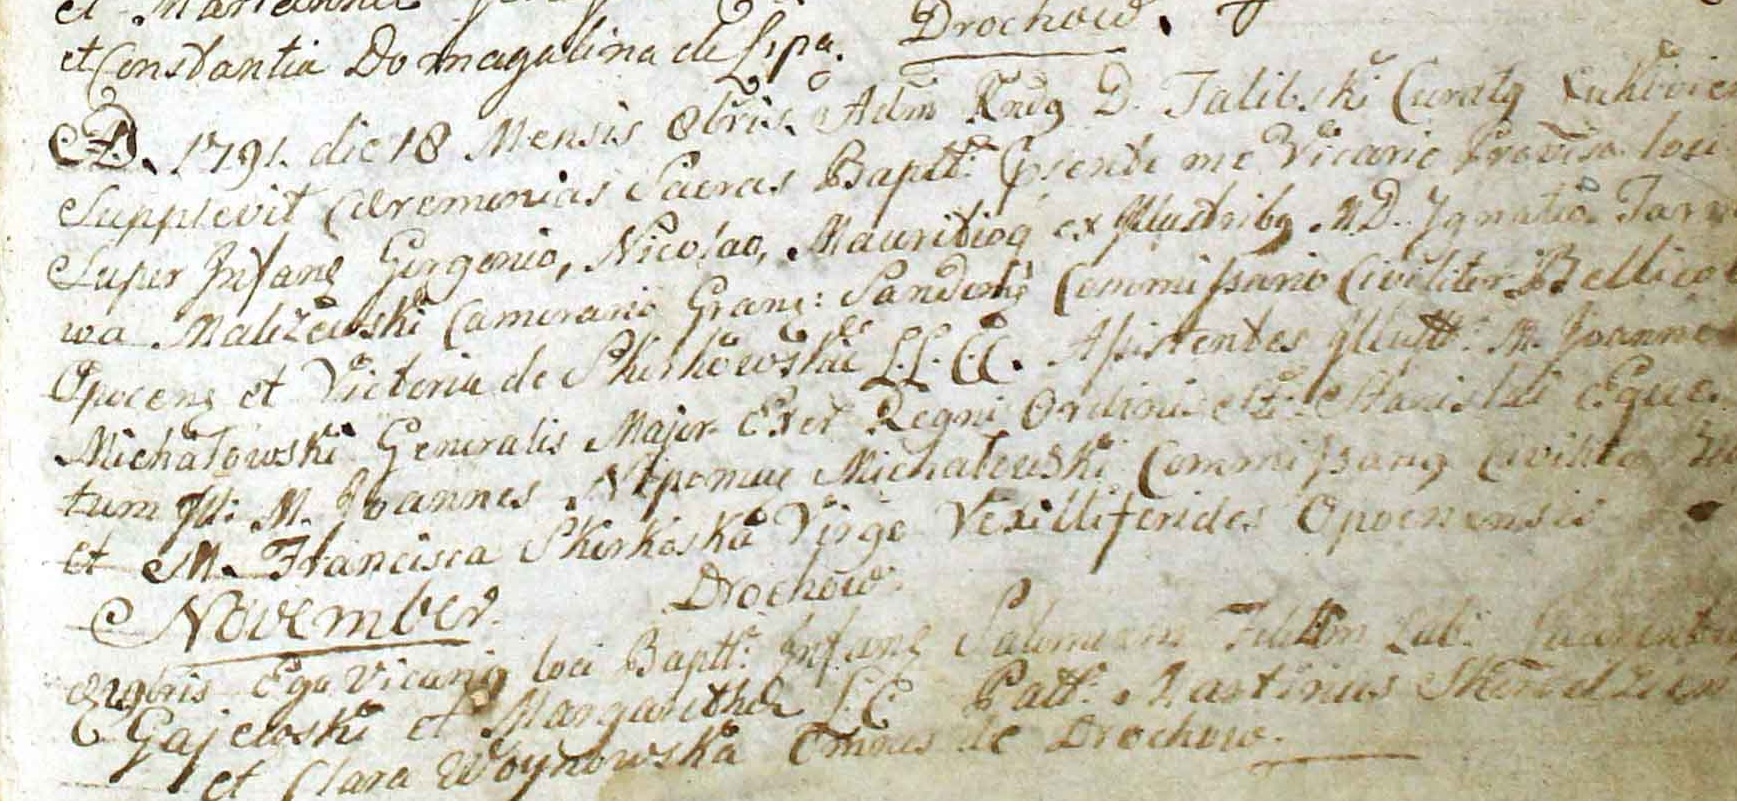 et Marianna
et Constantia Domagalina de Lipa.
Drochow.
A.D. 1791. die 18 Mensis 8bris. Adm Rndg D. Talibski Curatg
Supplevit Caeremonias Sacras Baptt: Epsente me Vicario Proviso loci
Super Infang Gorgonio, Nicolao, Mauritioq ex Illustribg M.D. Ignatio Tar
wa Maliżewski Camerario Grang: Sandom Commissario Civiliter Bellico
Opoceng et Victoria de Skurkowskie L.L. C.C. Assistentes Illustt: M. Joannes
Michałowski Generalis Major Exer Regni Ordinis Stti Stanislai Eque
tum Ill: M. Joannes Nepomuc Michałowski Commissarig Civilito
et M. Francisca Skurkoska Virgo Vexilliferides Opocnensis
November.
Drochow.
Ego Vicarig loci Baptt: Infang Salomeam Filiam Lab:
Gajewski et Margaritha L.C. Patt: Martinus
et Clara Woynowska Omnes de Drochow.